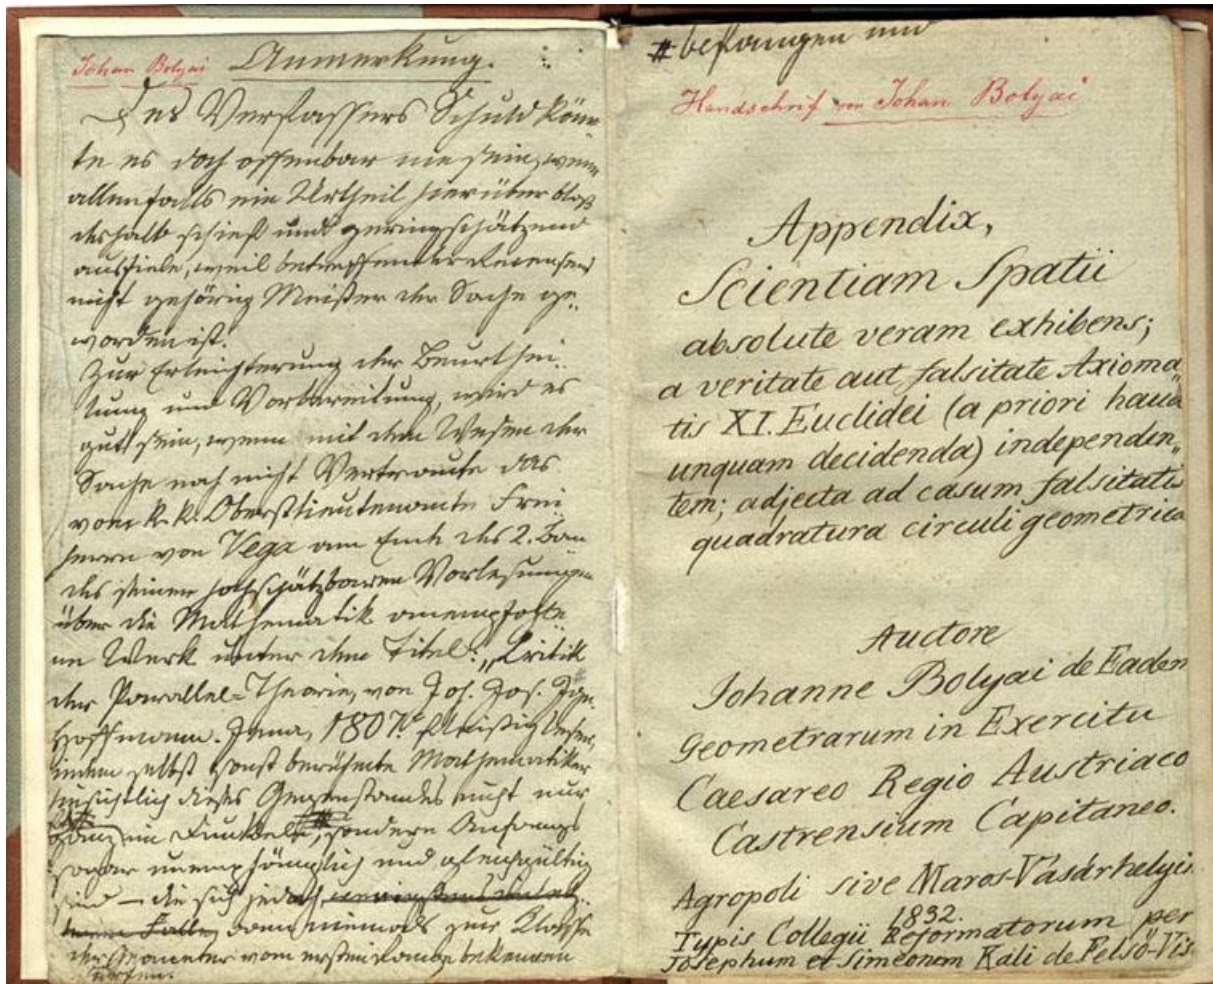 Johan Bolyai
Anmerkung.
Des Verfassers Schuld könn
te es doch offenbar nie sein, wenn
allenfalls ein Urtheil hierüber bloß
deshalb schief und geringschätzend
ausfiele, weil betreffender Recensent
nicht gehörig Meister der Sache ge„
worden ist.
Zur Erleichterung der Beurthei„
lung und Vorbereitung, wird es
gut sein, wenn mit dem Wesen der
Sache noch nicht Vertraute das
vom k. k. Oberstlieutenante Frei
herrn von Vega am Ende des 2. Ban
des seiner hochschätzbaren Vorlesungen
über die Mathematik anempfohle
ne Werk unter dem Titel: „Critik
der Parallel=Theorie, von Joh. Jos. Ign.
Hoffmann. Jena, 1807." fleißig lesen,
indem selbst sonst berühmte Mathematiker
hinsichtlich dieses Gegenstandes nicht nur
ganz im Dunkel #, sondern Anfangs
sogar unempfänglich und gleichgültig
sind — die sich jedoch
Falle, dann niemals zur Klasse
der Geometer vom ersten Range bekennen
dürfen.
# befangen und
Handschrif von Johan Bolyai
Appendix,
Scientiam Spatii
absolute veram exhibens;
a veritate aut falsitate Axioma„
tis XI. Euclidei (a priori haud
unquam decidenda) independen„
tem; adjecta ad casum falsitatis
quadratura circuli geometrica
Auctore
Johanne Bolyai de Eadem
Geometrarum in Exercitu
Caesareo Regio Austriaco
Castrensium Capitaneo.
Agropoli sive Maros-Vásárhelyii
1832.
Typis Collegii Reformatorum per
Josephum et Simeonem Kali de Felsö-Vis